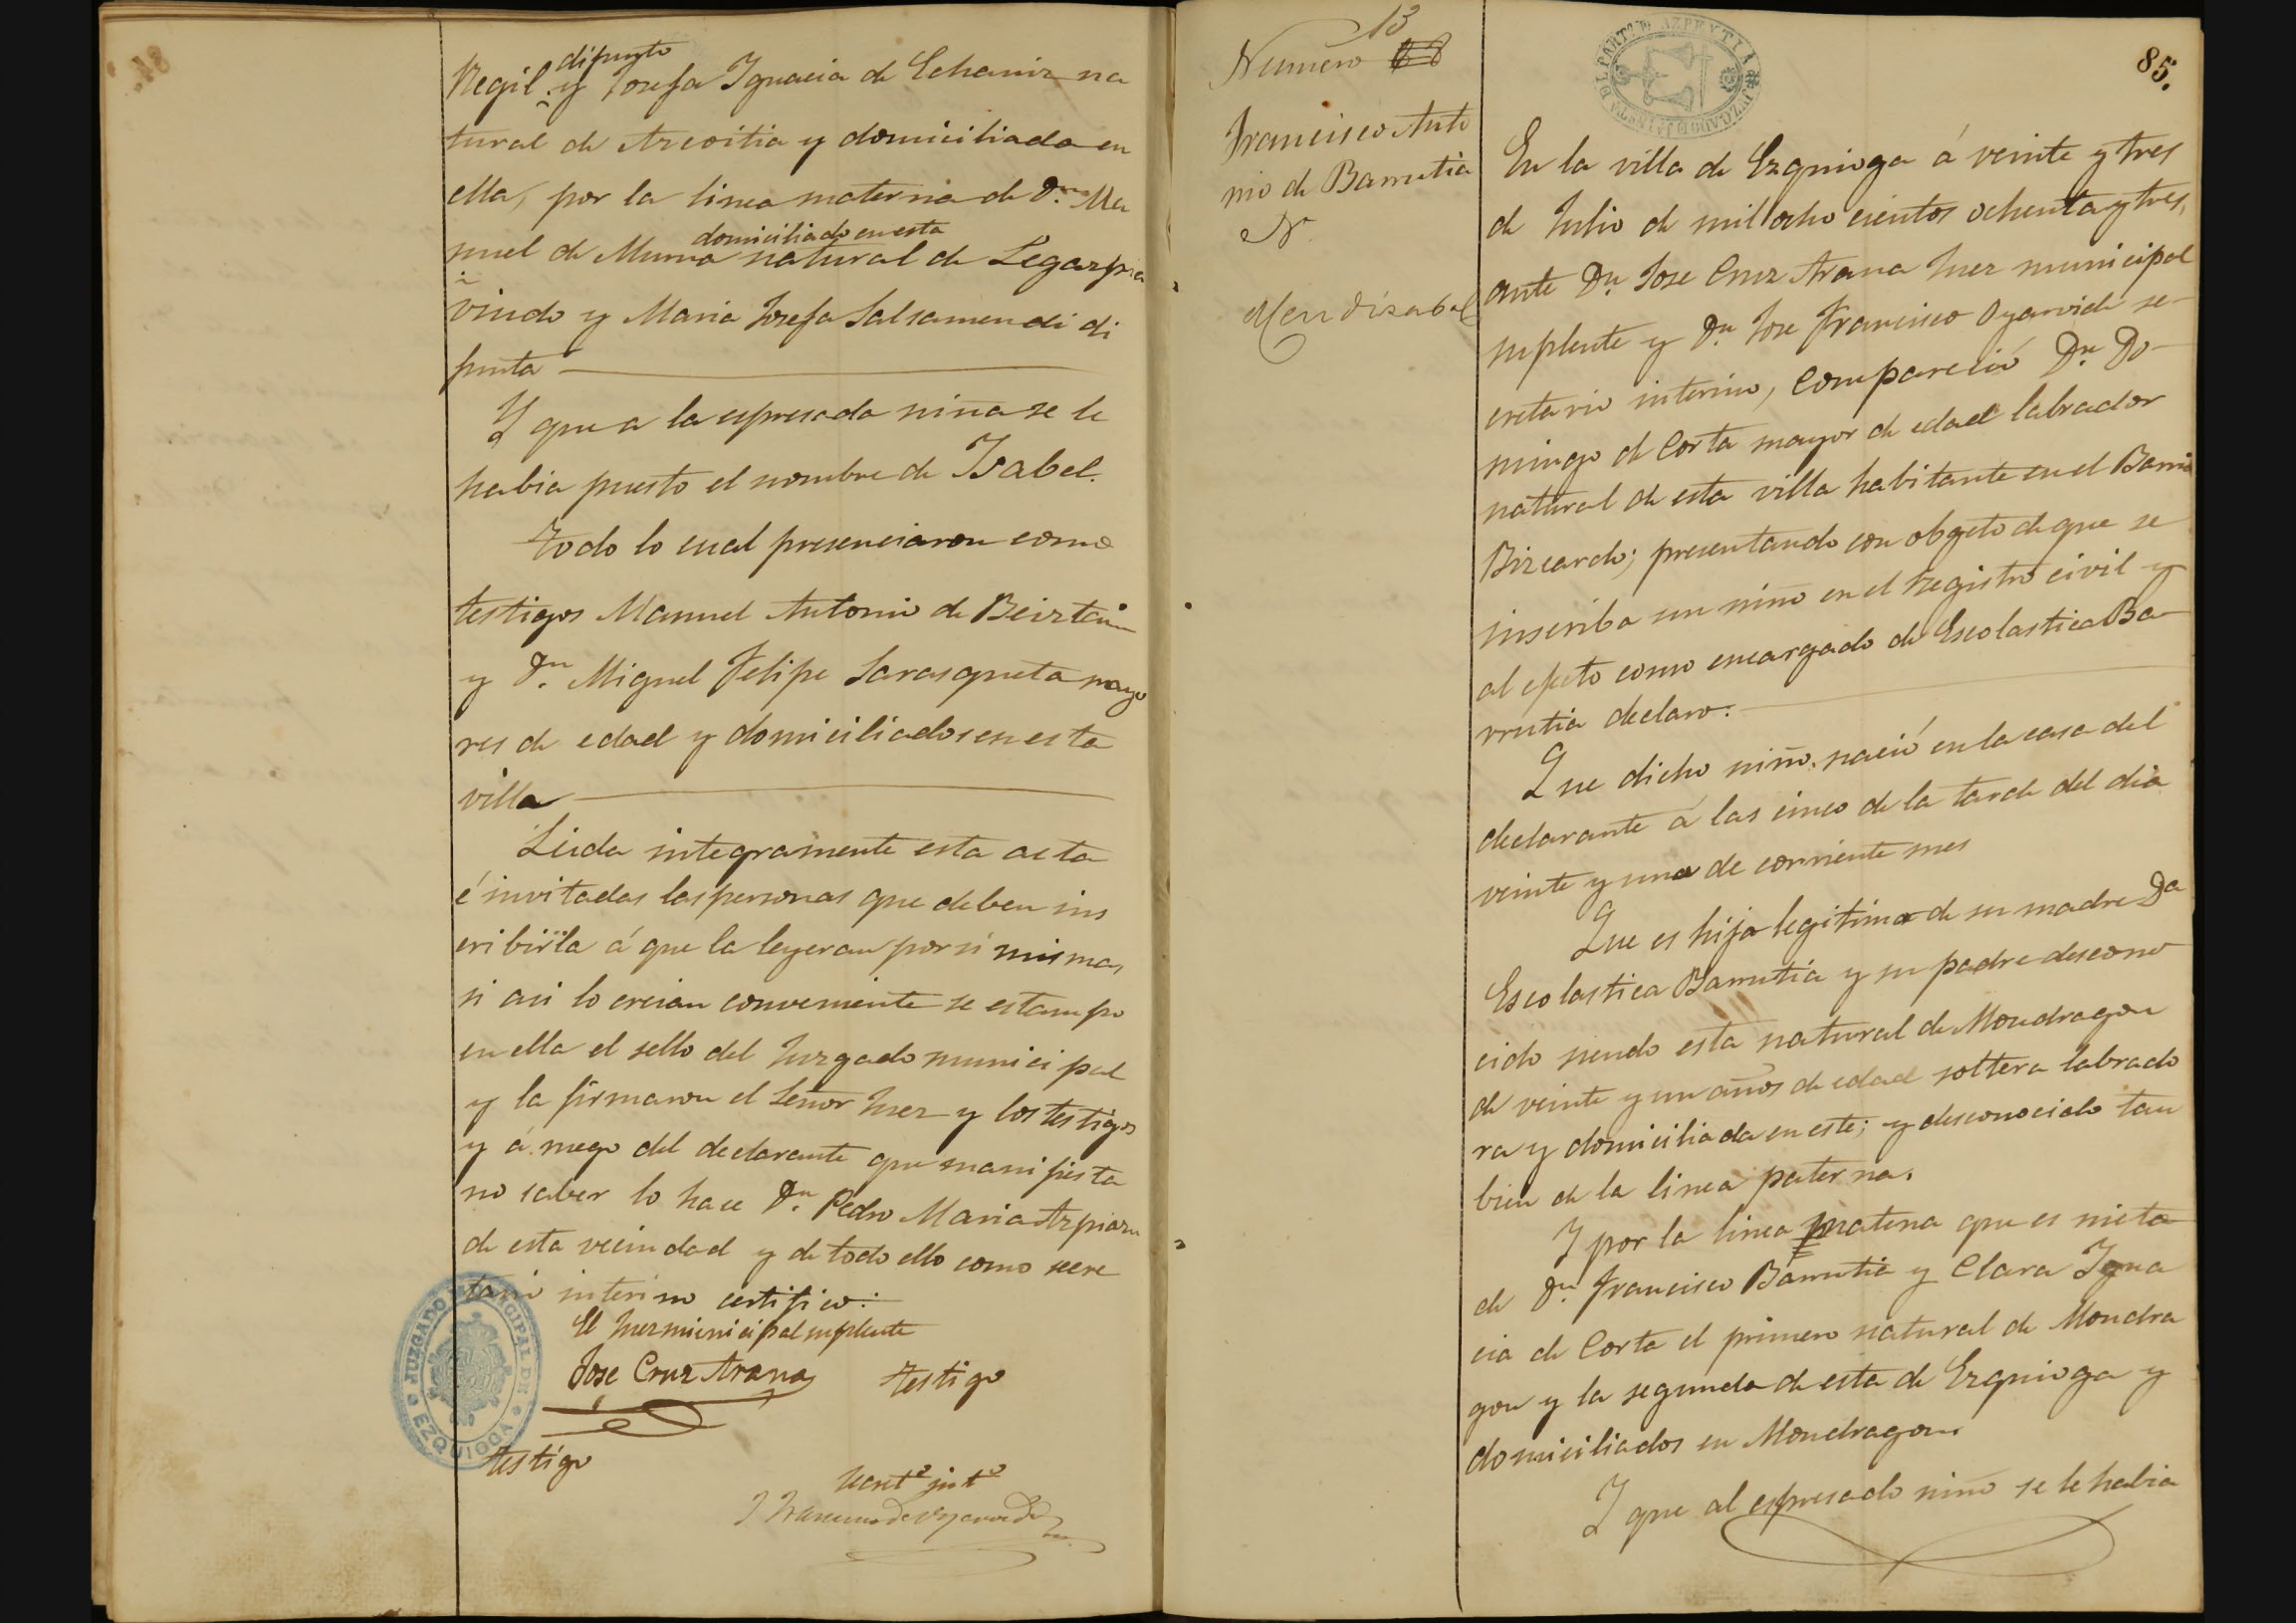 difunto
Regil y Josefa Ygnacia de Echaniz na
tural de Azcoitia y domiciliada en
ella, por la linea materna de Dn. Ma
domiciliado en esta
nuel de Murua natural de Legazpia
viudo y Maria Josefa Salsamendi di
funta
Y que a la espresada niña se le
habia puesto el nombre de Ysabel.
Todo lo cual presenciaron como
testigos Manuel Antonio de Beiztain
y Dn. Miguel Felipe Sarasqueta mayo
res de edad y domiciliados en esta
villa
Leida integramente esta acta
é invitadas las personas que deben ins
cribirla á que la leyeran por si mismas
si asi lo creian conveniente se estampo
en ella el sello del Juzgado municipal
y la firmaron el Señor Juez y los testigos
y á ruego del declarante que manifiesta
no saber lo hace Dn. Pedro Maria Azpiazu
de esta vecindad y de todo ello como secre
tario interino certifico:
El Juez municipal suplente
Jose Cruz Arana testigo
JUZGADO MUNICIPAL DE EZQUIOGA
testigo
Secreto. into.
J Francisco de Oyarvide
13
Numero
Francisco Anto
nio de Barrutia
Mendizabal
PARTIDO DE AZPEYTIA
85.
En la villa de Ezquioga á veinte y tres
de Julio de mil ocho cientos ochenta y tres,
ante Dn. Jose Cruz Arana Juez municipal
suplente y Dn. Jose Francisco Oyarvide se-
cretario interino, compareció Dn. Do-
mingo de Corta mayor de edad labrador
natural de esta villa habitante en el Barrio
Bizcardo; presentando con obgeto de que se
inscriba un niño en el registro civil y
al efecto como encargado de Escolastica Ba-
rrutia declaro:
Que dicho niño nació en la casa del
declarante á las cinco de la tarde del dia
veinte y uno de corriente mes
Que es hijo legitimo de su madre Da
Escolastica Barrutia y su padre descono
cido siendo esta natural de Mondragon
de veinte y un años de edad soltera labrado
ra y domiciliada en este; y desconocido tan
bien de la linea paterna.
Y por la linea materna que es nieto
de Dn. Francisco Barrutia y Clara Ygna
cia de Corta el primero natural de Mondra
gon y la segunda de esta de Ezquioga y
domiciliados en Mondragon.
Y que al espresado niño se le habia